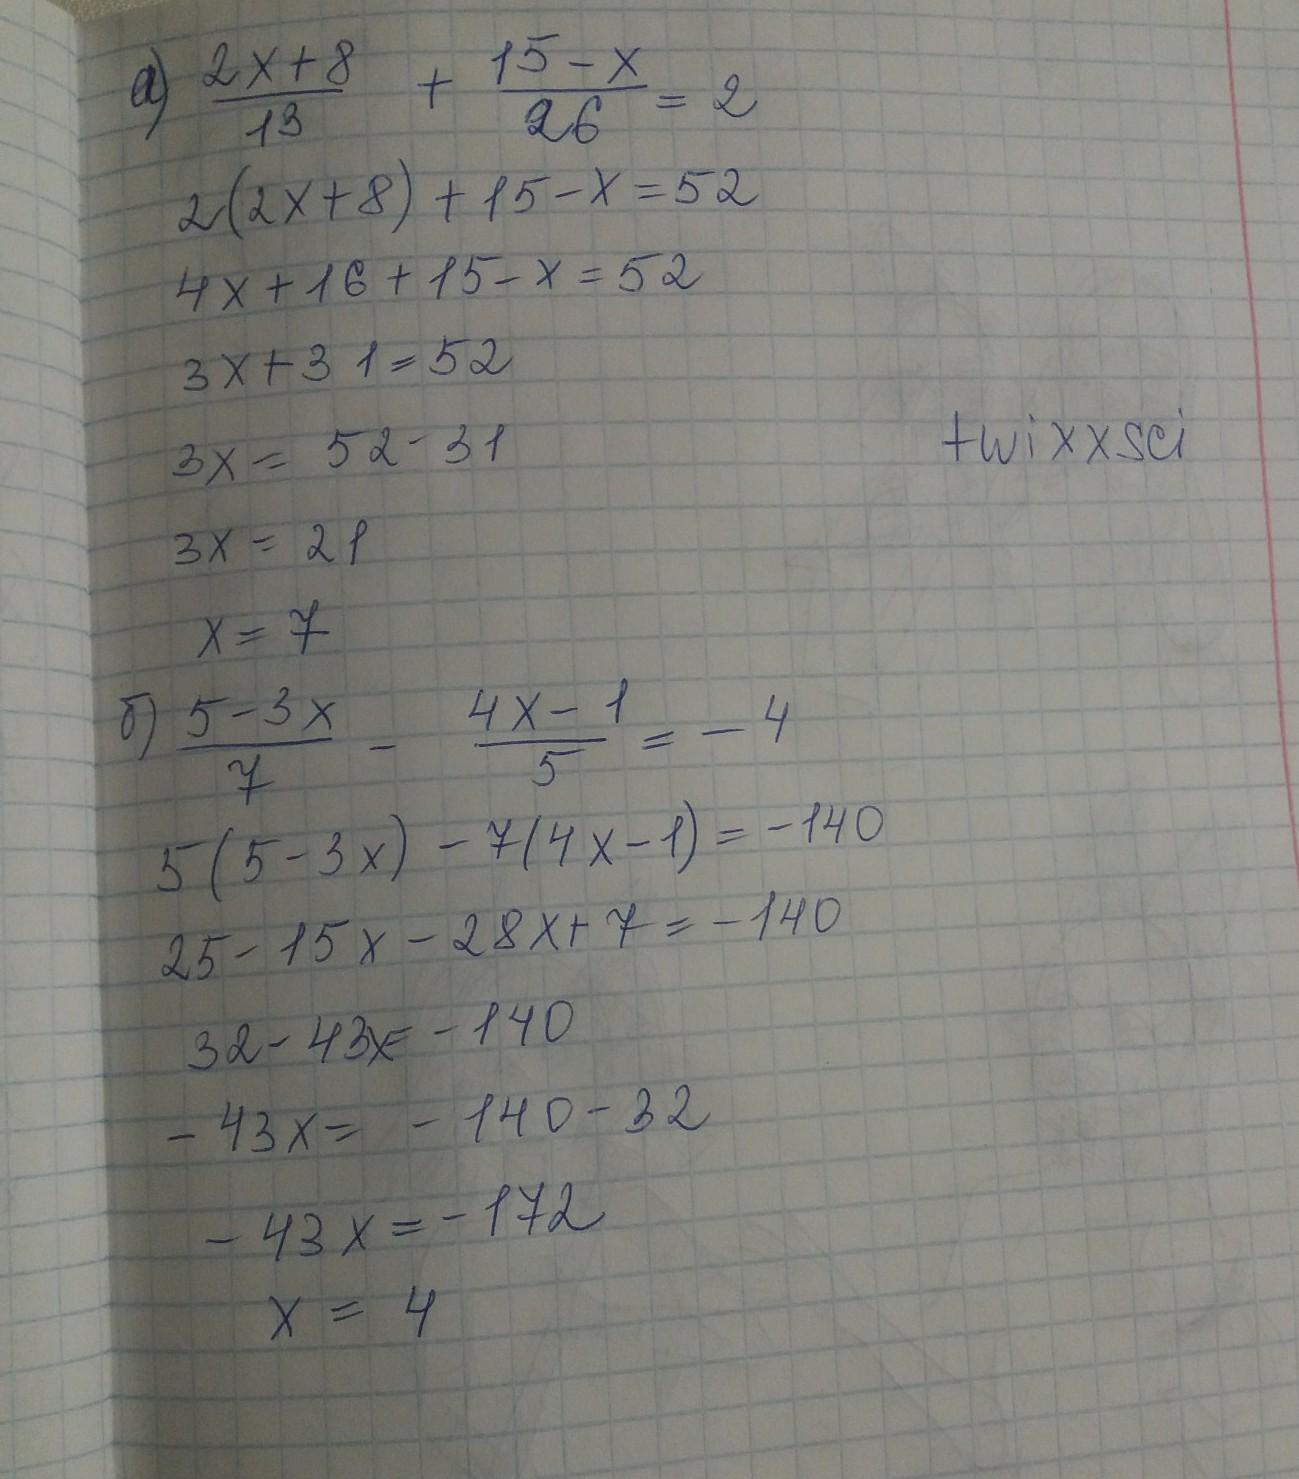 а) (2x+8)/13 + (15-x)/26 = 2
2(2x+8)+15-x=52
4x+16+15-x=52
3x+31=52
3x= 52-31
twixxsci
3x= 21
x=7
б) (5-3x)/7 - (4x-1)/5 = -4
5(5-3x)-7(4x-1)=-140
25-15x-28x+7=-140
32-43x=-140
-43x= -140-32
-43x=-172
x = 4